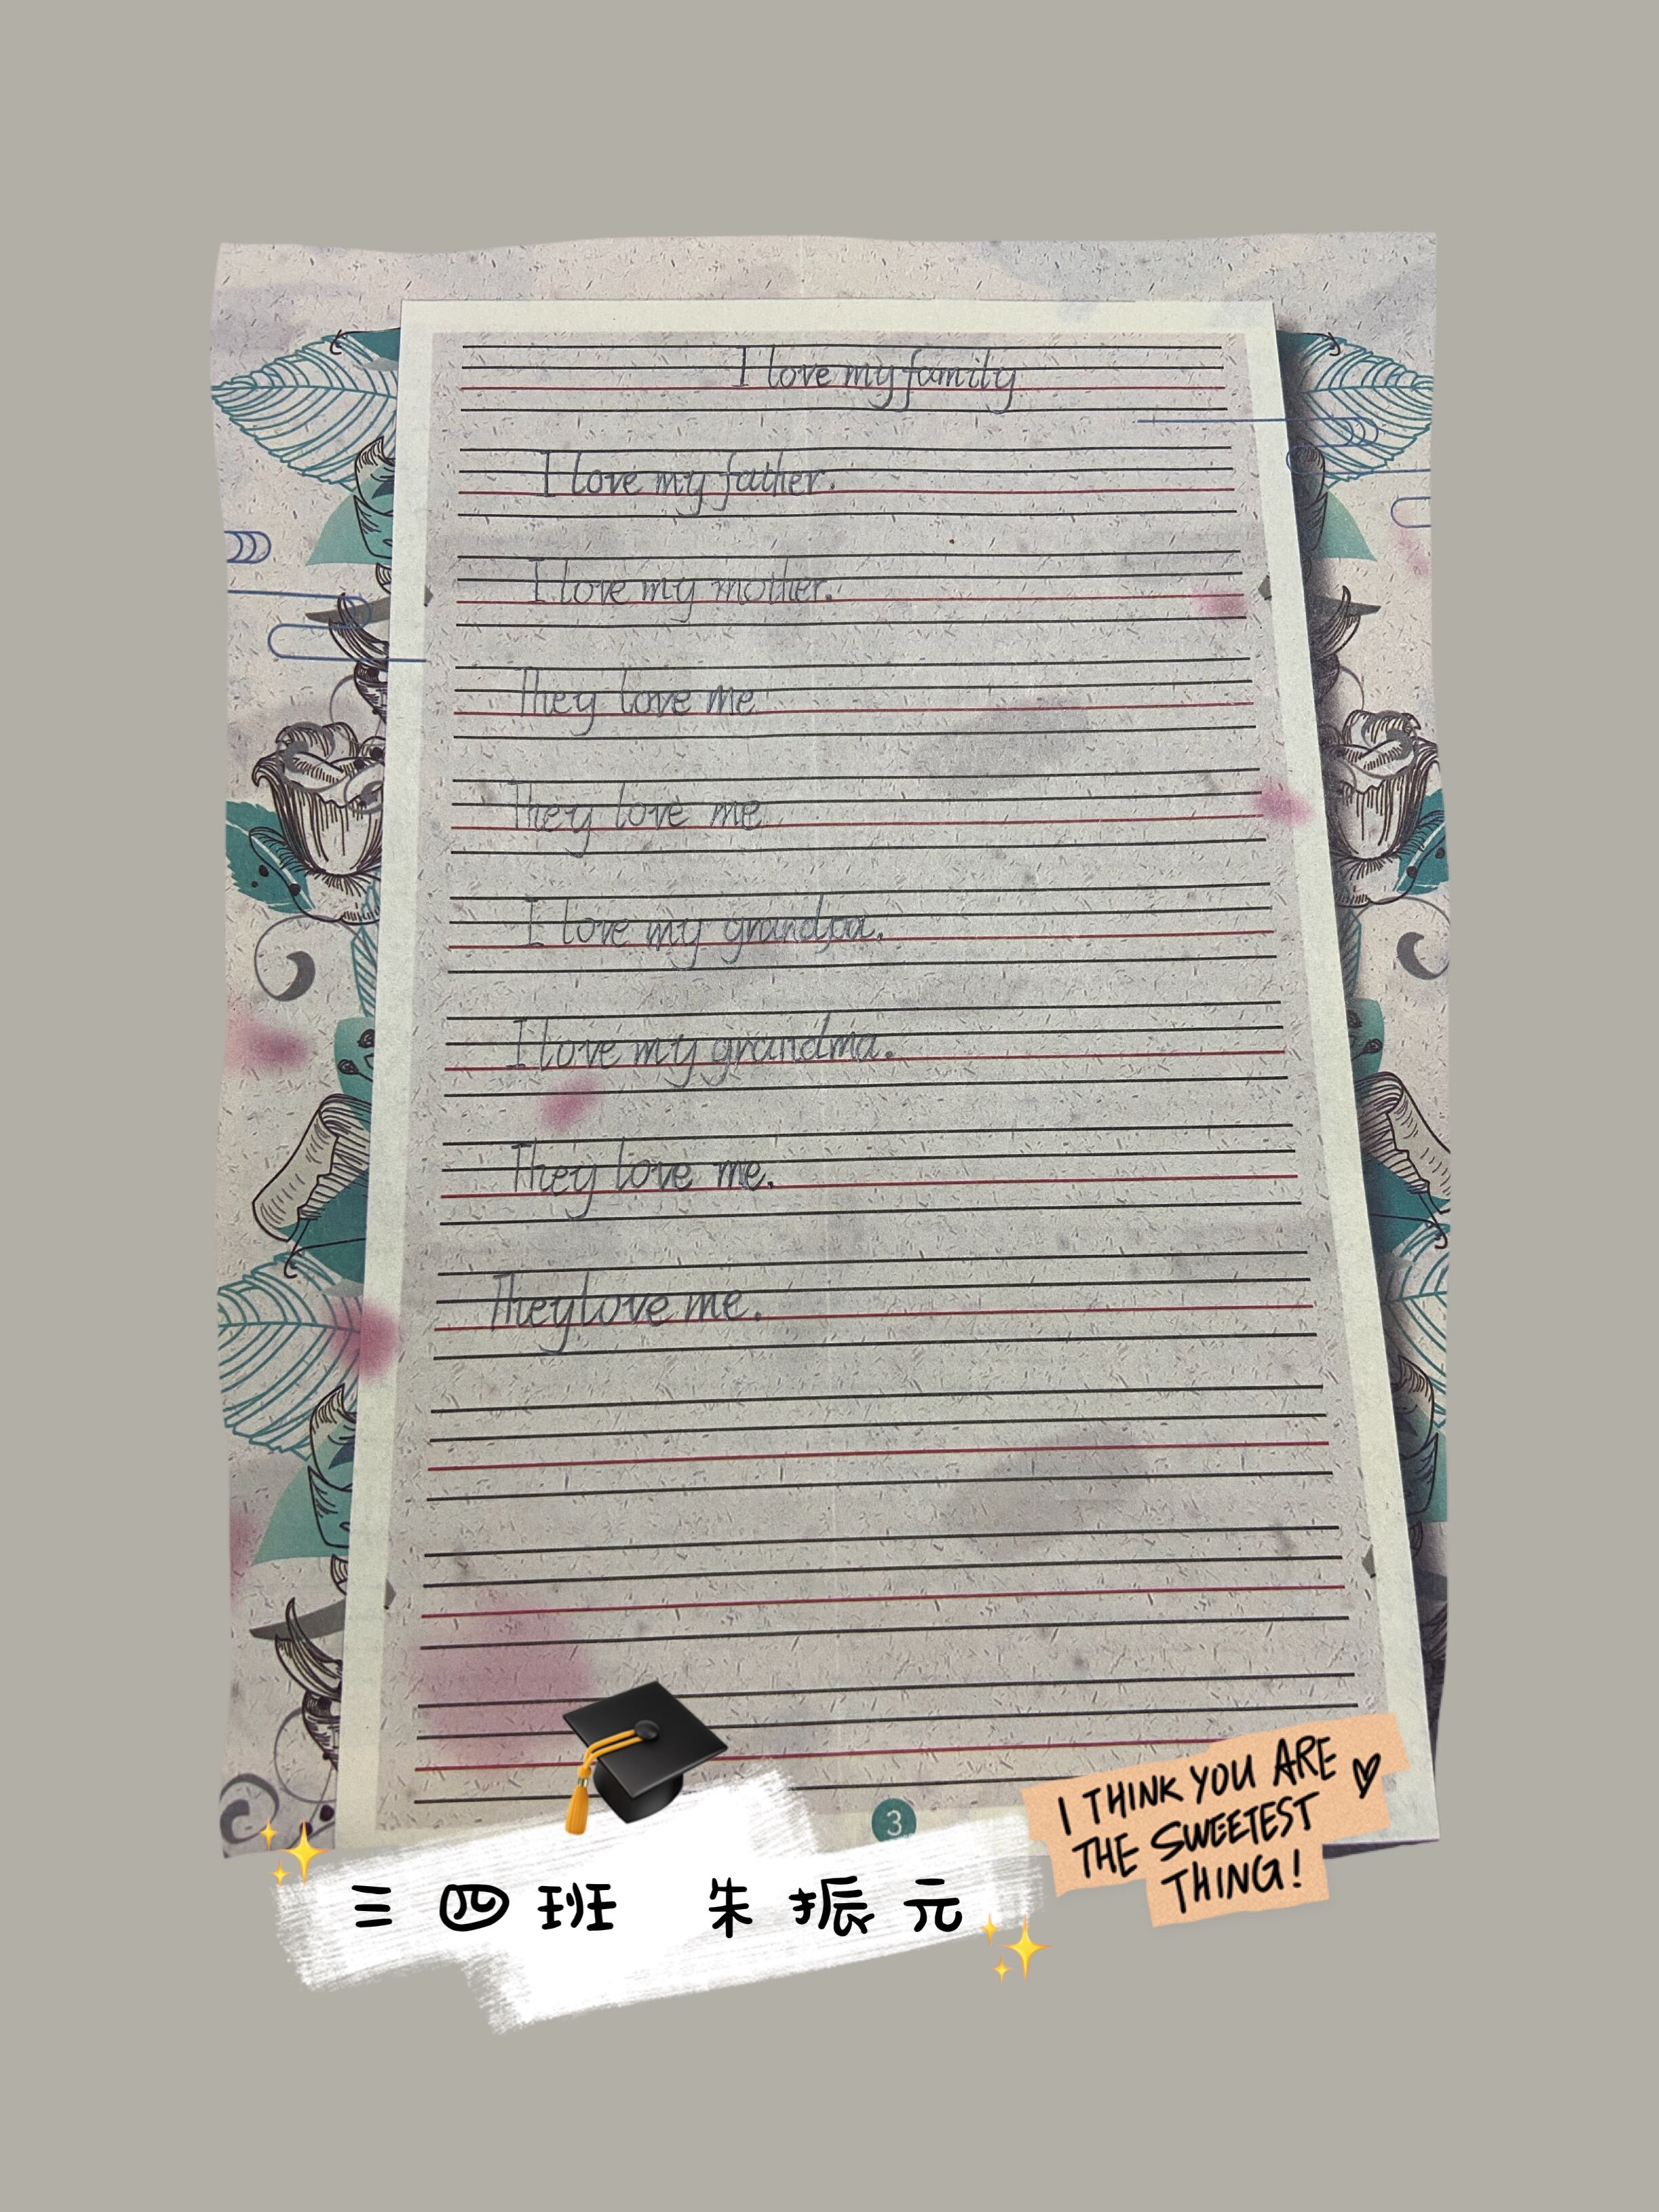 I love my family
I love my father.
I love my mother.
They love me
They love me
I love my grandpa.
I love my grandma.
They love me.
They love me.
3
三四班 朱振元
I THINK YOU ARE
THE SWEETEST
THING!